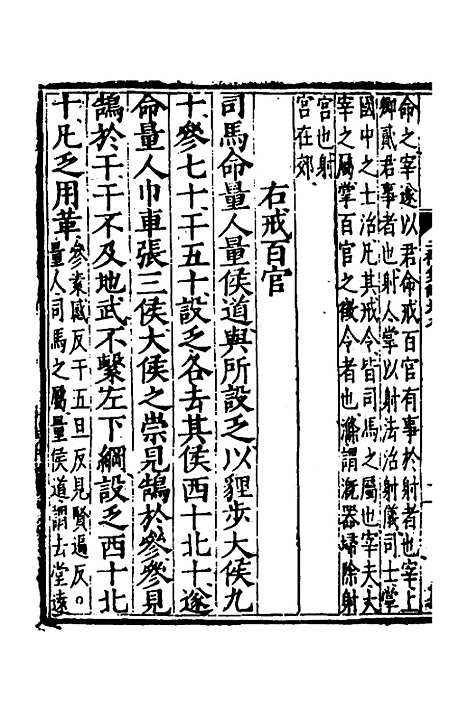 命之宰遂以君命戒百官有事於射者也宰上
卿貳君事者也射人掌以射法治射儀司士掌
國中之士治凡其戒令皆司馬之屬也宰夫大
宰之屬掌百官之徵令者也滌謂溉器埽除射
宮也射
宮在郊
右戒百官
司馬命量人量侯道與所設乏以貍步大侯九
十參七十干五十設乏各去其侯西十北十遂
命量人巾車張三侯大侯之崇見鵠於參參見
鵠於干干不及地武不繫左下綱設乏西十北
十凡乏用革
參素感反干五旦反見賢遍反。
量人司馬之屬量侯道謂去堂遠